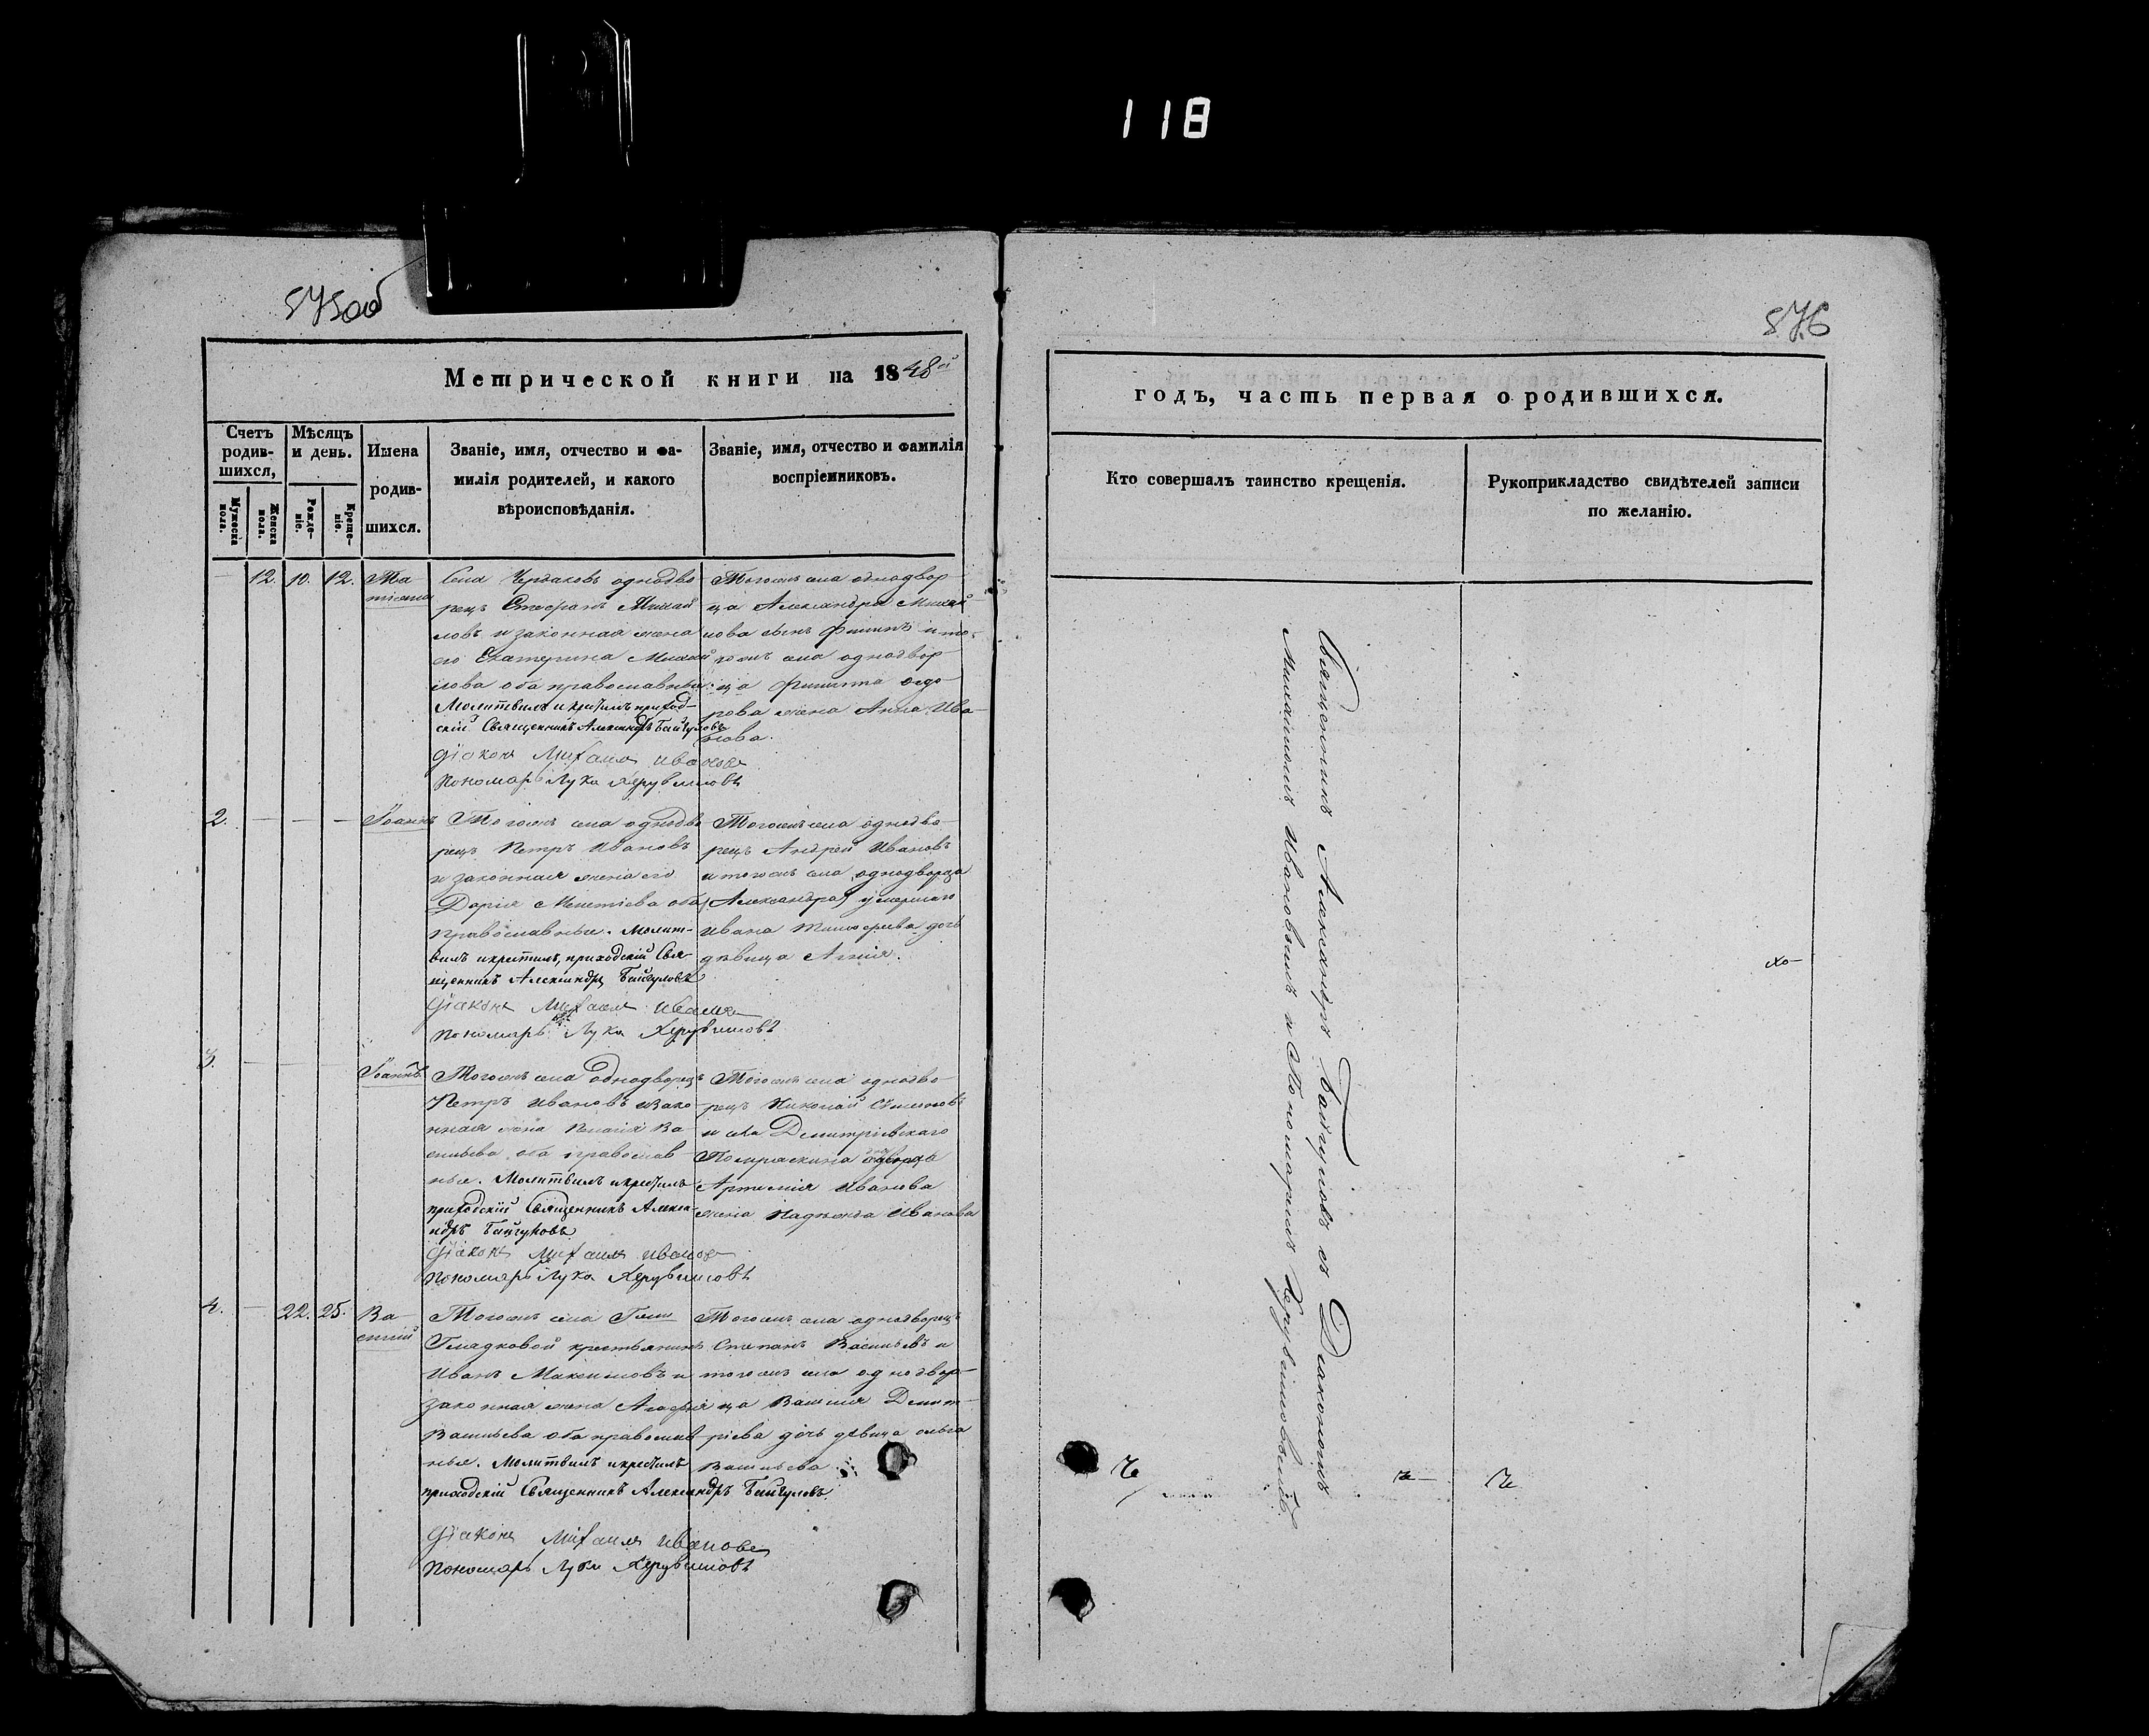 118
575об
576
Метрической книги на 1848й
годъ, часть первая о родившихся.
Счетъ родив-шихся,
Мужеска пола.
Женска пола.
Мѣсяцъ и день.
Рожде-ніе.
Креще-ніе.
Имена
родив-
шихся.
Званіе, имя, отчество и фа-
милія родителей, и какого
вѣроисповѣданія.
Званіе, имя, отчество и фамилія
воспріемниковъ.
Кто совершалъ таинство крещенія.
Рукоприкладство свидѣтелей записи
по желанію.
12. 10. 12. Та
тіана
Села Чердаковъ однодво
рецъ Стефанъ Михай
ловъ и законная жена
его Екатерина Михай
лова оба православные.
Молитвилъ и крестилъ приход-
скій Священникъ Александръ Байгуловъ
Діаконъ Михаилъ Ивановъ
Пономарь Лука Херувимовъ
Тогожъ села однодвор
ца Александра Михай
лова сынъ Филипъ и то-
гожъ села однодвор
ца Филиппа Ѳедо
рова жена Анна Ива
нова.
2. Іоаннъ
Тогожъ села однодво
рецъ Петръ Ивановъ
и законная жена его
Дарія оба
православные. Молит-
вилъ и крестилъ, приходскій Свя-
щенникъ Александръ Байгуловъ
Діаконъ Михаилъ Ивановъ
Пономарь Лука Херувимовъ
Тогожъ села однодво
рецъ Андрей Ивановъ
и тогожъ села однодворца
(Александра) умершаго
Ивана дочь
дѣвица
3. Іоаннъ
Тогожъ села Однодворецъ
Петръ Ивановъ и зако
нная жена Пелагія Ва
сильева оба православ
ные. Молитвилъ и крестилъ
приходскій Священникъ Алекса
ндръ Байгуловъ
Діаконъ Михаилъ Ивановъ
Пономарь Лука Херувимовъ
Тогожъ села однодво
рецъ Николай Семеновъ
и села Димитріевскаго
Артемія Иванова
жена Надежда Иванова
4. 22. 25. Ва
силій
Тогожъ села
Гладковой крестьянинъ
Иванъ Максимовъ и
законная жена
Васильева оба православ
ные. Молитвилъ и крестилъ
приходскій Священникъ Александръ Байгуловъ
Діаконъ Михаилъ Ивановъ
Пономарь Лука Херувимовъ
Тогожъ села однодворецъ
Степанъ Васильевъ и
тогожъ села однодвор
ца Василія Димит
ріева дочь дѣвица Ольга
Васильева
Священникъ Александръ Байгуловъ съ Діакономъ
Михаиломъ Ивановымъ и Пономаремъ Херувимовымъ